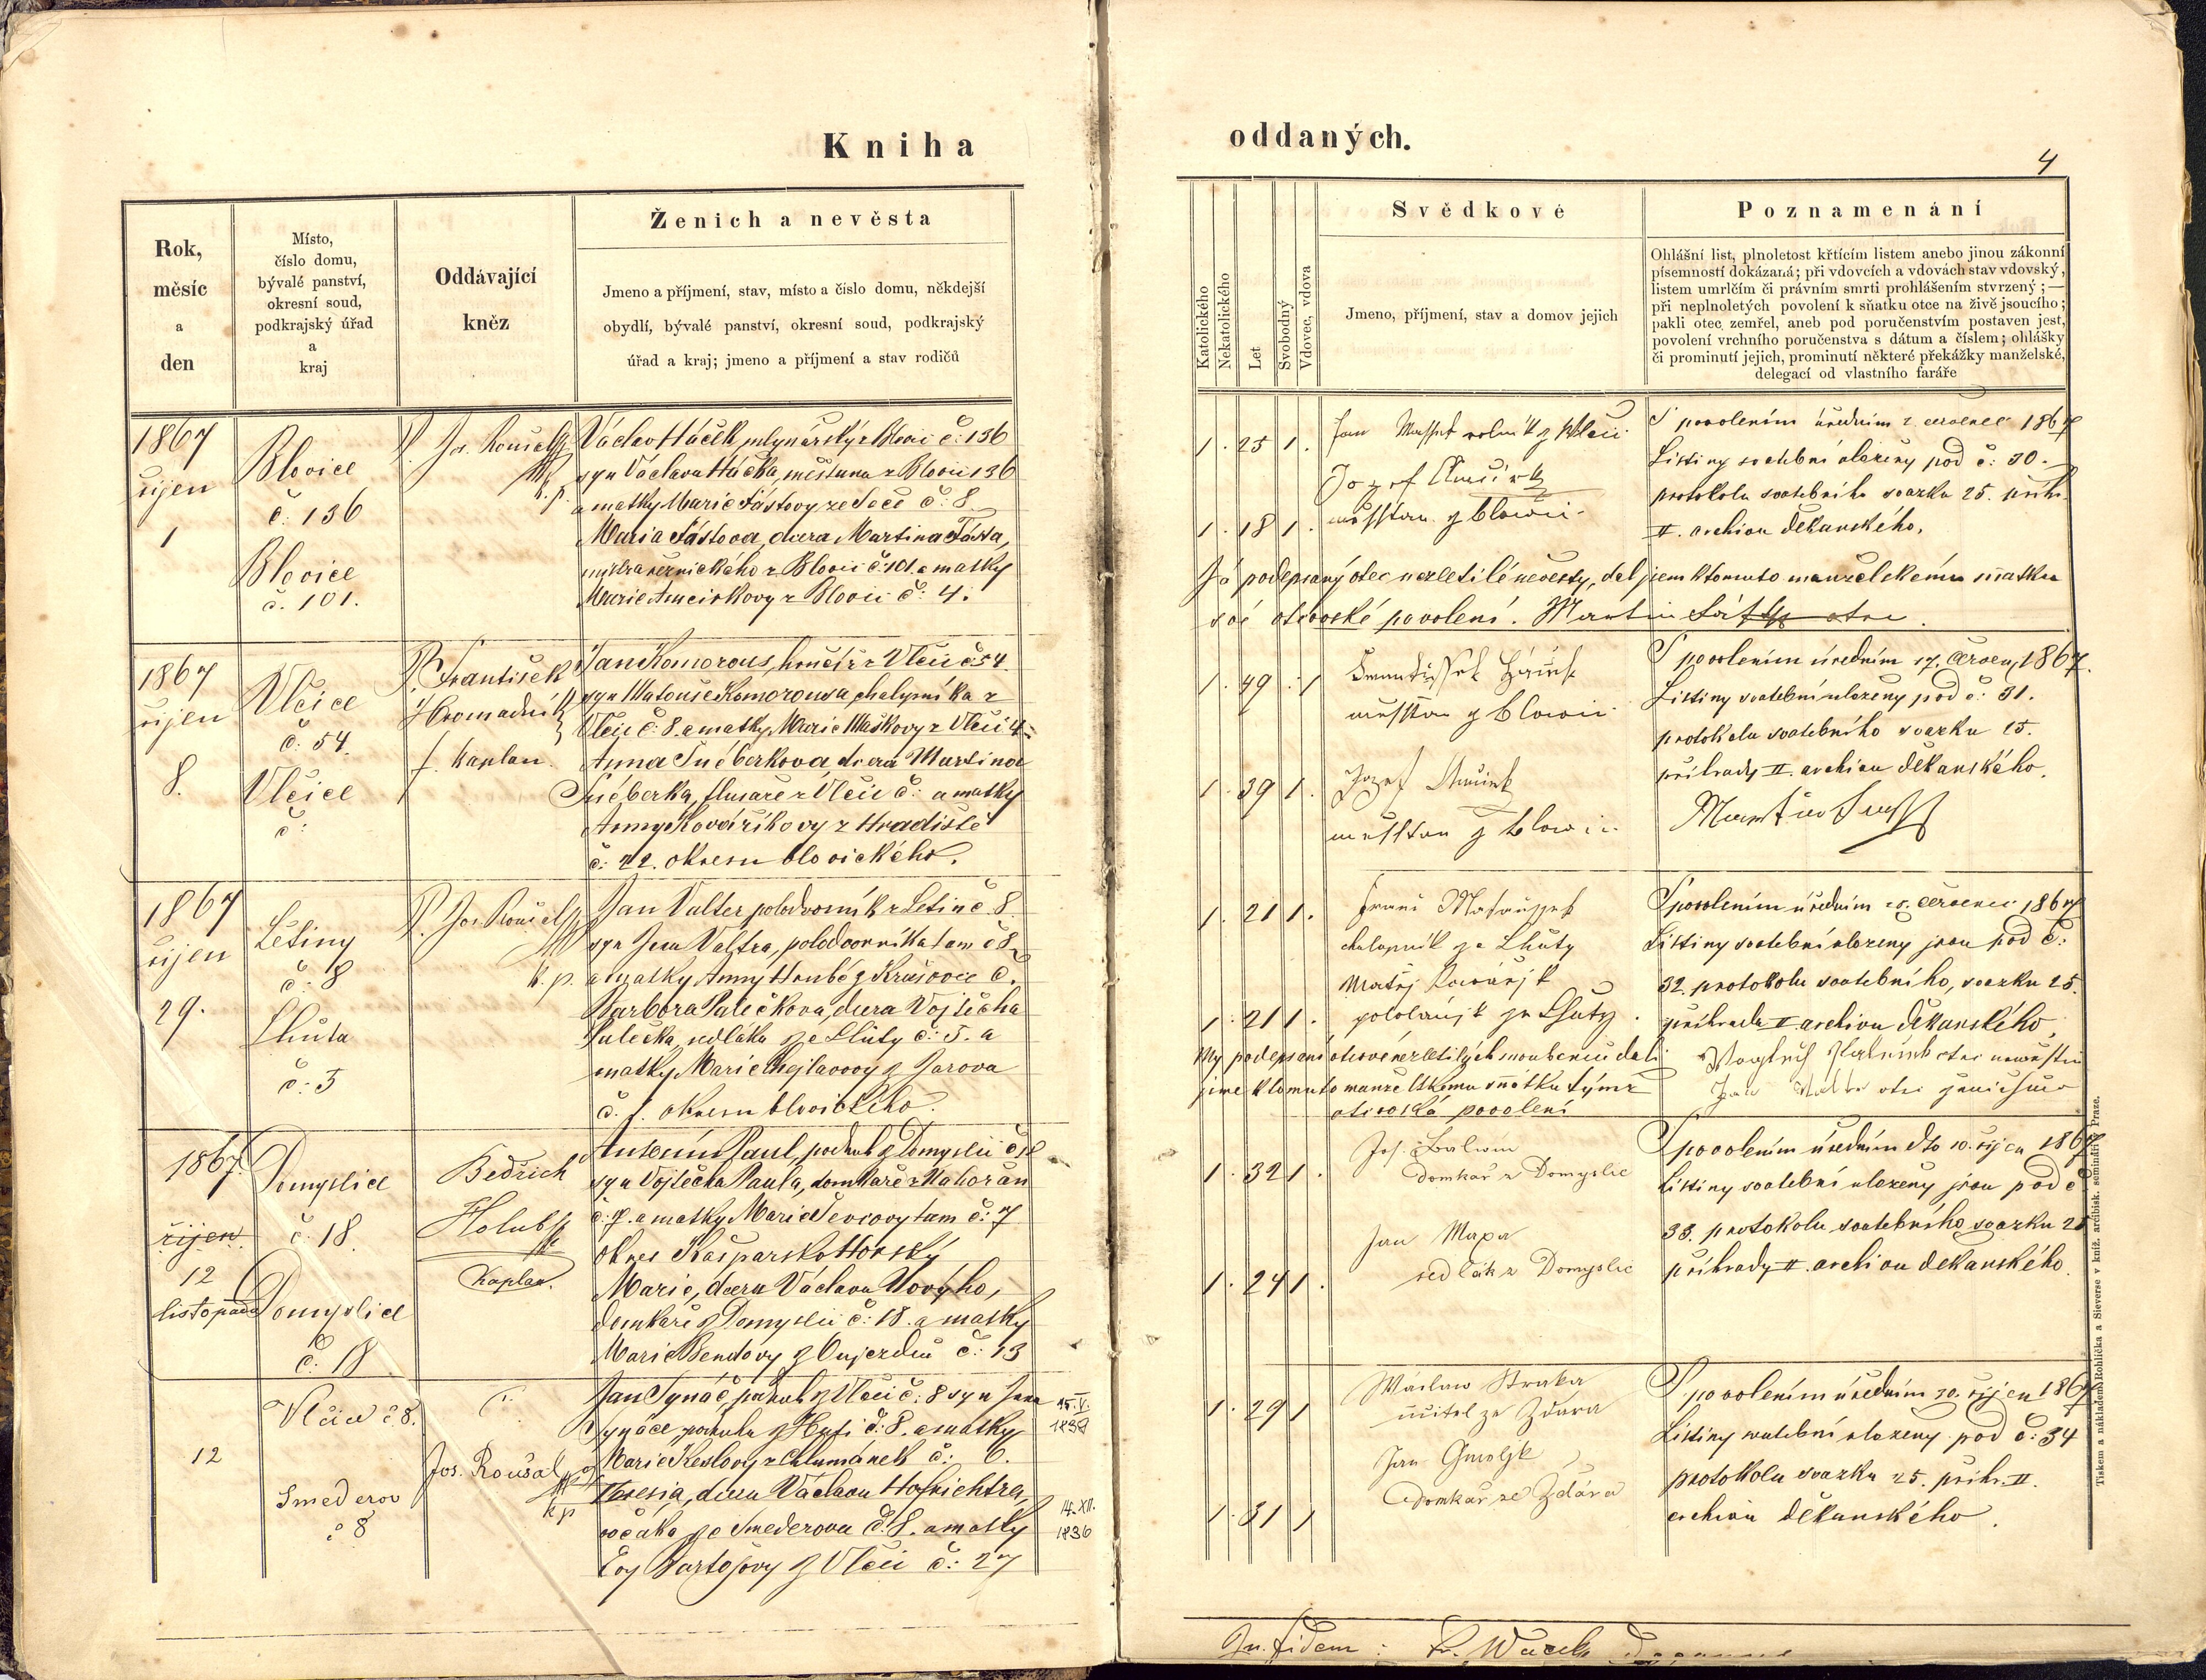 Kniha
oddaných.
4
Rok,
měsíc
a
den
Místo,
číslo domu,
bývalé panství,
okresní soud,
podkrajský úřad
a
kraj
Oddávající
kněz
Ženich a nevěsta
Jmeno a příjmení, stav, místo a číslo domu, někdejší
obydlí, bývalé panství, okresní soud, podkrajský
úřad a kraj; jmeno a příjmení a stav rodičů
Katolického
Nekatolického
Let
Svobodný
Vdovec, vdova
Svědkové
Jmeno, příjmení, stav a domov jejich
Poznamenání
Ohlášní list, plnoletost křtícím listem anebo jinou zákonní
písemností dokázaná; při vdovcích a vdovách stav vdovský,
listem umrlčím či právním smrti prohlášením stvrzený; —
při neplnoletých povolení k sňatku otce na živě jsoucího;
pakli otec zemřel, aneb pod poručenstvím postaven jest,
povolení vrchního poručenstva s dátum a číslem; ohlášky
či prominutí jejich, prominutí některé překážky manželské,
delegací od vlastního faráře
1867
říjen
1
Blovice
č. 136
Blovice
č. 101.
P. Jos. Roušal
k. p.
Václav Háček, mlynářský z Blovic č: 136
syn Václava Háčka, měšťana z Blovic 136
a matky Marie Fástovy ze Seče č: 8
Maria Fástova, dcera Martina Fásta,
mistra řeznického z Blovic č: 101. a matky
Marie z Blovic č: 4.
1. 25 1.
1. 18 1.
Jan rolník z Wlčic
Jozef
měsstan z Blowic
S povolením úředním 2. července 1867
Listiny svatební uloženy pod č: 30.
protokolu svatebního svazku 25. přihr.
II. archivu děkanského.
Já podepsaný otec nezletilé nevěsty, dal jsem k tomuto manželskému sňatku
své otcovské povolení. Martin otec.
1867
říjen
8.
Vlčice
č. 54.
Vlčice
č:
P. František
Hromadník
kaplan.
Jan Komorous, hončíř z Vlčic č: 54.
syn Matouše Komorousa, chalupníka z
Vlčic č: 8. a matky Marie Maškovy z Vlčic 4
Anna dcera Martina
z Vlčic č: a matky
Anny Kovaříkovy z Hradiště
č: 22. okresu blovického.
1. 49 1
1. 39 1.
Frantissek
měsstan z Blowic
Jozef
měsstan z Blowic
S povolením úředním 17. červen. 1867.
Listiny svatební uloženy pod č: 31.
protokolu svatebního svazku 25.
přihrady II. archivu děkanského.
1867
říjen
29.
Letiny
č: 8
Lhůta
č: 5
P. Jos. Roušal
k. p.
Jan Valter, polodvorník z Letin č. 8.
syn Jana Valtra, polodvorníka tam č 8
a matky Anny Hrubé z Krašovic č.
Barbora Palečkova, dcera Vojtěcha
Palečka, sedláka ze Lhůty č: 5. a
matky Marie Chejlavovy z Žarova
č. 1. okresu blovického.
1. 21 1.
1. 21 1.
Matoussek
chalupník ze Lhůty
Matěj Kowářjk
pololánjk ze Lhůty.
S povolením úředním 28. července 1867
Listiny svatební uloženy jsou pod č:
32. protokolu svatebního, svazku 25.
přihrada II archivu děkanského.
My podepsaní otcové nezletilých snoubenců dali
jsme k tomuto manželskému sňatku týmž
otcovské povolení
otec newěsty
Jan Walter otec ženichůw
1867.
říjen
12
listopadu
Domyslice
č. 18.
Domyslice
č: 18
Bedřich
Holub
Kaplan.
Antonín Paul, podruh z Domyslic č 18
syn Vojtěcha Paula, domkaře z Nahořan
č: 7. a matky Marie Ševcovy tam č: 7
okres Kašparskohorský
Marie, dcera Václava Nového,
domkaře z Domyslic č: 18. a matky
Marie Bendovy z Oujezdu č: 13
1. 32 1.
1. 24 1.
Jos. Balwín
domkář z Domyslic
Jan Maxa
sedlák z Domyslic
S povolením úředním dto 10. říjen 1867
Listiny svatební uloženy jsou pod č
33. protokolu svatebního svazku 25
přihrady II. archivu děkanského.
12
Vlčice č 8.
Smederov
č 8
Jos. Roušal
k p
Jan Synáč, podruh z Vlčic č: 8 syn Jana
Synáče, podruha z Huti č. 8. a matky
Marie Keslovy z Chlumánek č: 6.
Teresia, dcera Václava Hofrichtra,
ze Smederova č. 8. a matky
Evy Bartošovy z Vlčic č: 27
15. V.
1838
14. XII.
1836
1. 29 1
1. 31 1
Wáclaw Straka
učitel ze Ždára
Jan
domkář ze Ždára
S povolením úředním 30. říjen 1867
Listiny svatební uloženy pod č: 34
protokolu svazku 25. přihr. II.
archivu děkanského.
In fidem:
Tiskem a nákladem Rohlíčka a Sieverse v kníž. arcibisk. semináři v Praze.